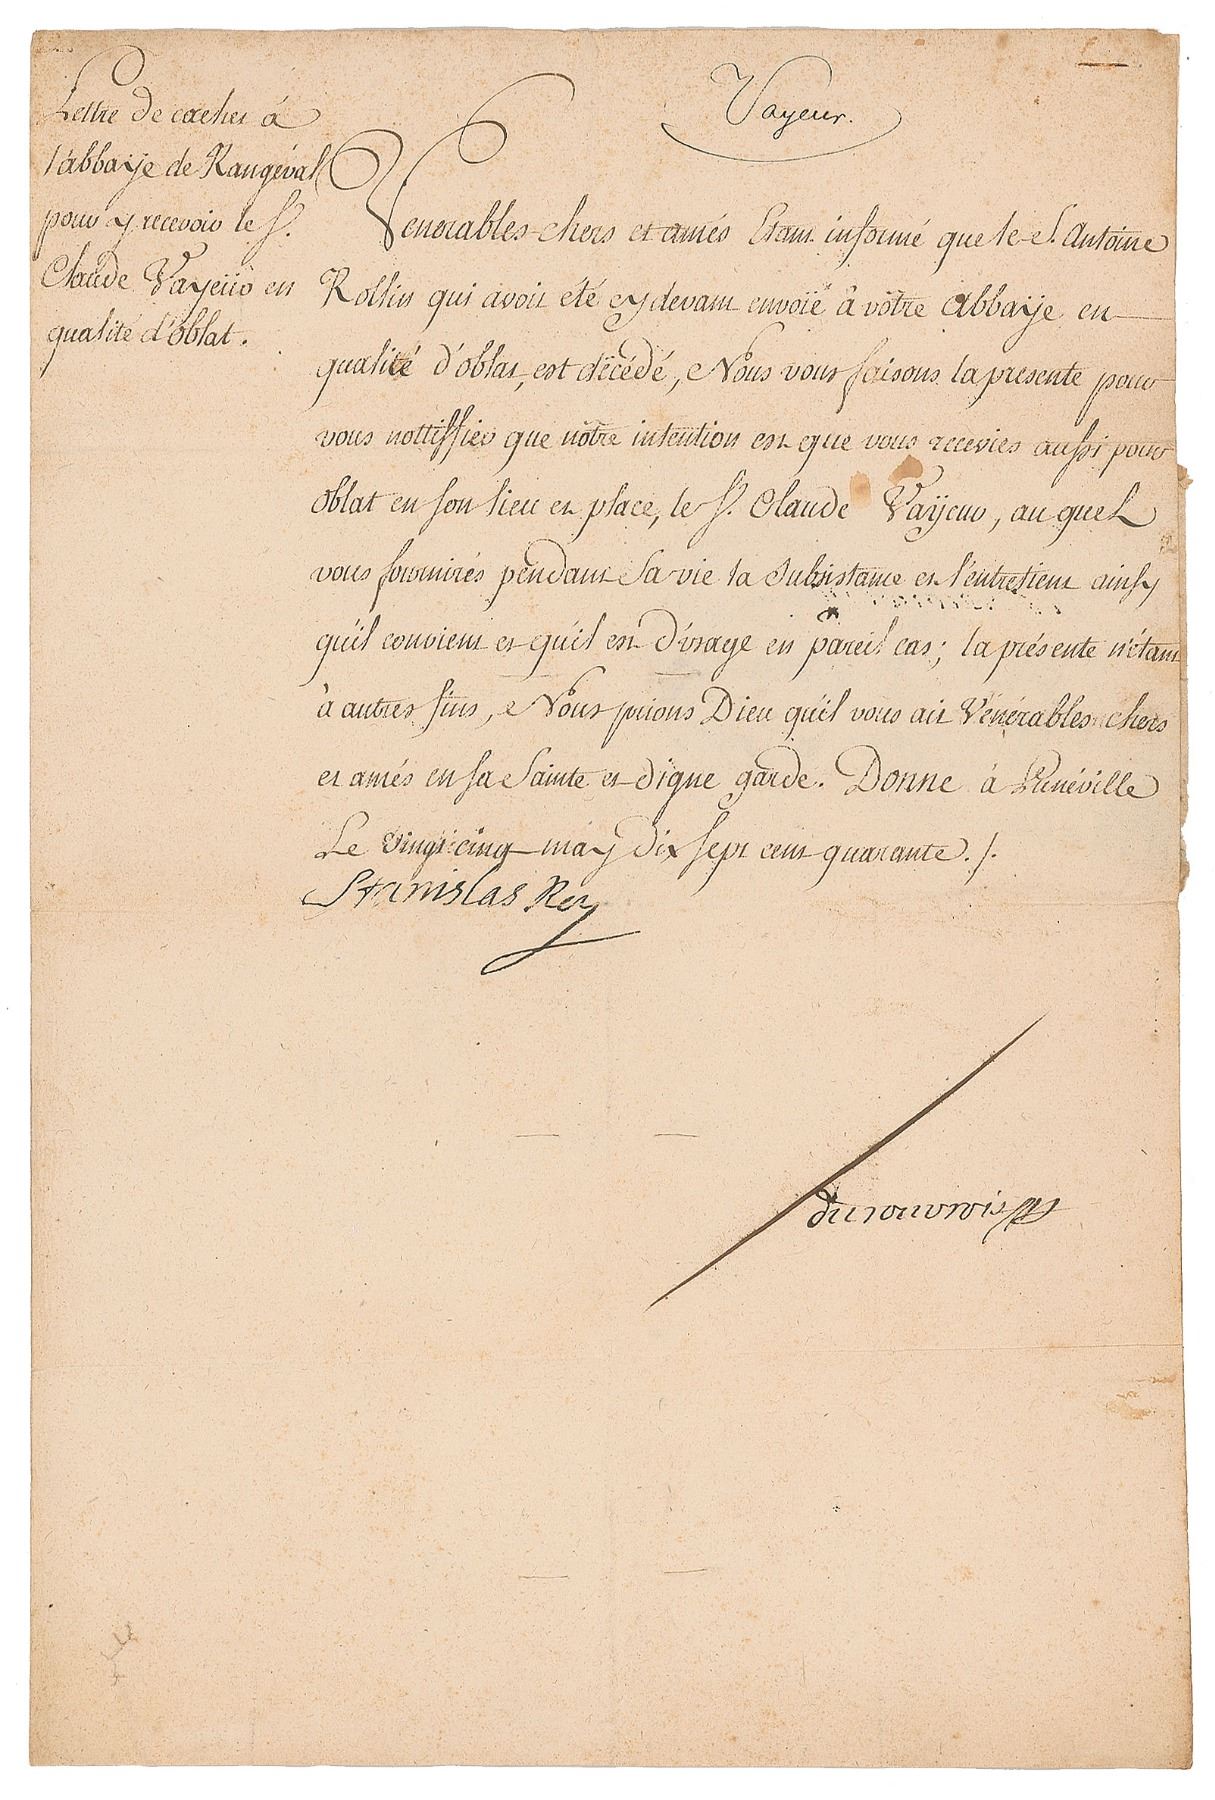 Vayeur.
Lettre de cachet à
l'abbaÿe de Rangéval
pour y recevoir le Sr.
Claude Vayeur en
qualité d'oblat.
Venerables chers et amés Etant informé que le S. Antoine
Rollin qui avoit été cydevant envoïé à vôtre abbaÿe en
qualité d'oblat, est décédé, Nous vous faisons la presente pour
vous nottiffier que nôtre intention est que vous receviés aussi pour
oblat en son lieu et place, le Sr. Claude Vaÿeur, auquel
vous fournirés pendant sa vie la subsistance et l'entretient ainsy
qu'il convient et qu'il est d'usage en pareil cas; la présente n'étant
à autres fins, Nous prions Dieu qu'il vous ait Vénérables chers
et amés en sa Sainte et digne garde. Donné à Lunéville
Le vingt cinq may dix sept cent quarante ./.
Stanislas Roy
durouvrois